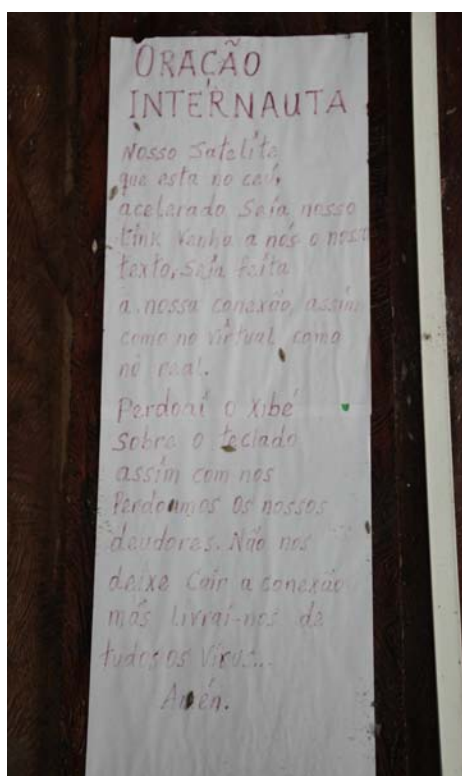 ORAÇÃO
INTERNAUTA
Nosso Satelite
que esta no ceú,
acelerado Seja nosso
Link Venha a nós o nosso
texto, Seja feita
a nossa conexão, assim
como no virtual, como
no real.
Perdoai o Xibé
Sobre o teclado
assim com nos
Perdoamos Os nossos
deudores. Não nos
deixe Cair a conexão
más Livrai-nos de
tudos os Vírus...
Amén.